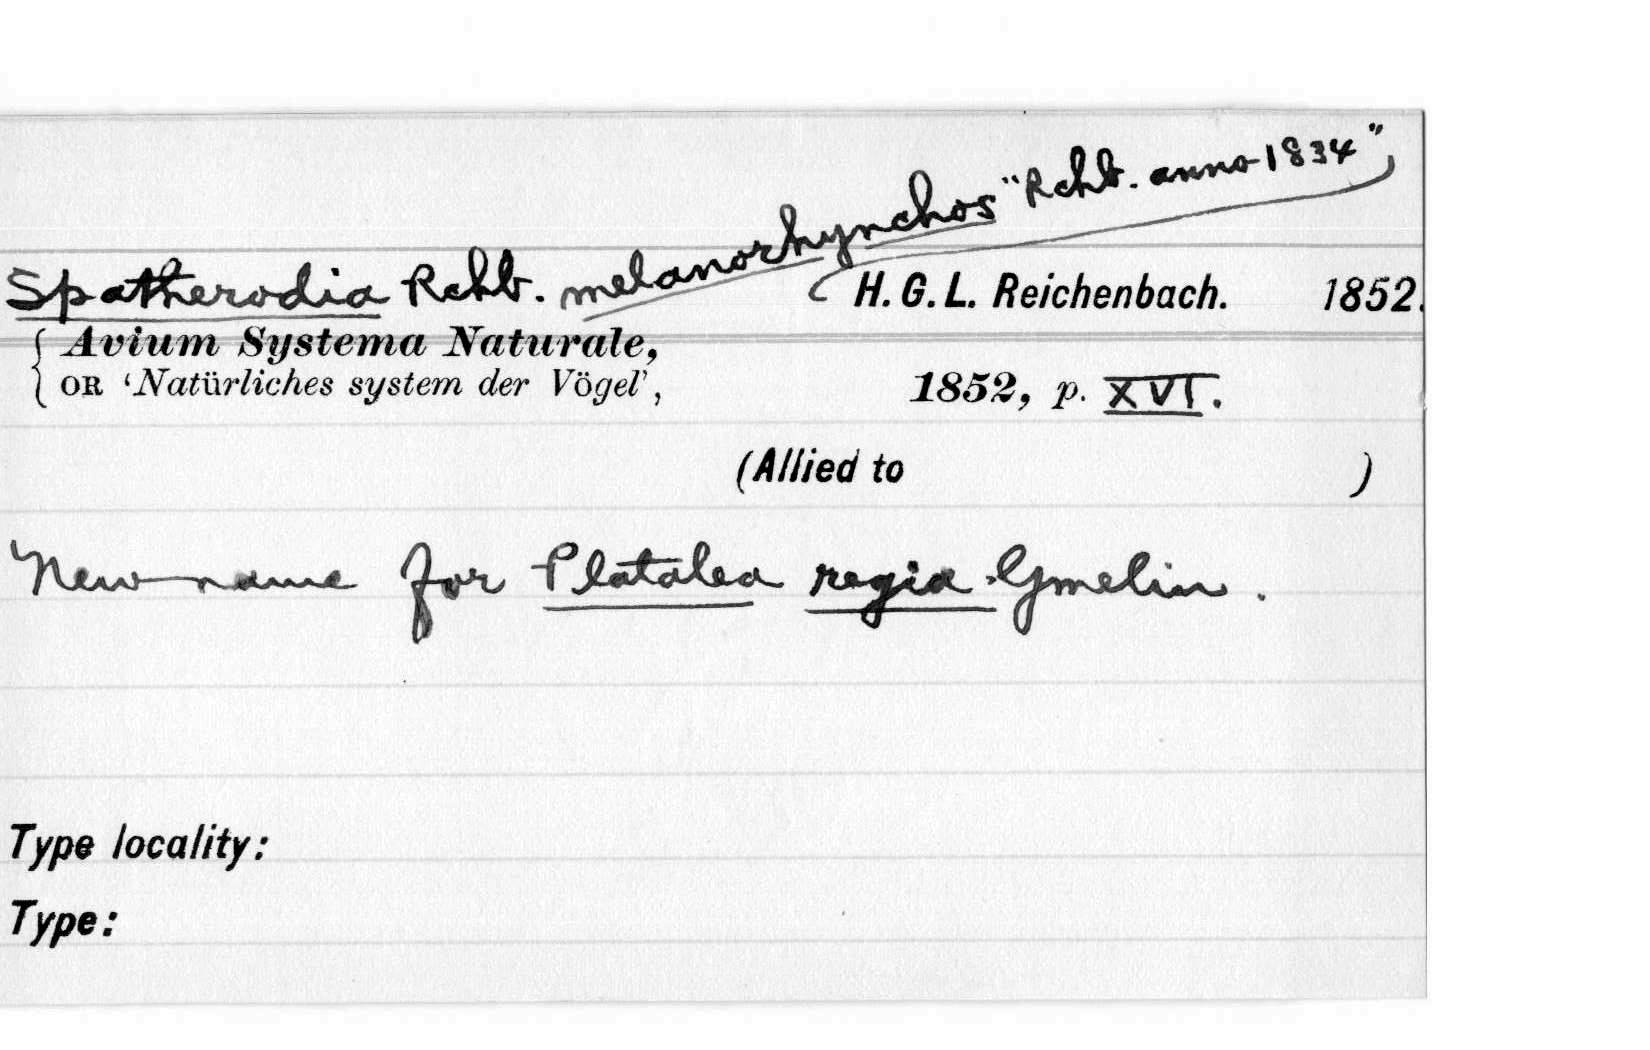 Spatherodia Rchb. melanorhynchos "Rchb. anno 1834" H. G. L. Reichenbach. 1852.
Avium Systema Naturale,
OR 'Natürliches system der Vögel', 1852, p. XVI.
(Allied to )
New name for Platalea regia Gmelin.
Type locality:
Type: